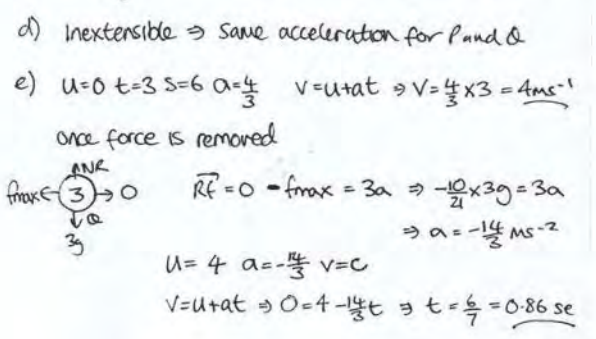 d) Inextensible ⇒ Same acceleration for P and Q
e) u=0 t=3 s=6 a=4/3 v=u+at ⇒ v=4/3×3 = 4ms⁻¹
once force is removed
NR
fmax ← 3 → 0 RF = 0 - fmax = 3a ⇒ -10/21×3g=3a
Q
3g ⇒ a = -14/3 ms⁻²
u= 4 a=-14/3 v=c
v=u+at ⇒ 0=4-14/3t ⇒ t=6/7=0.86 se